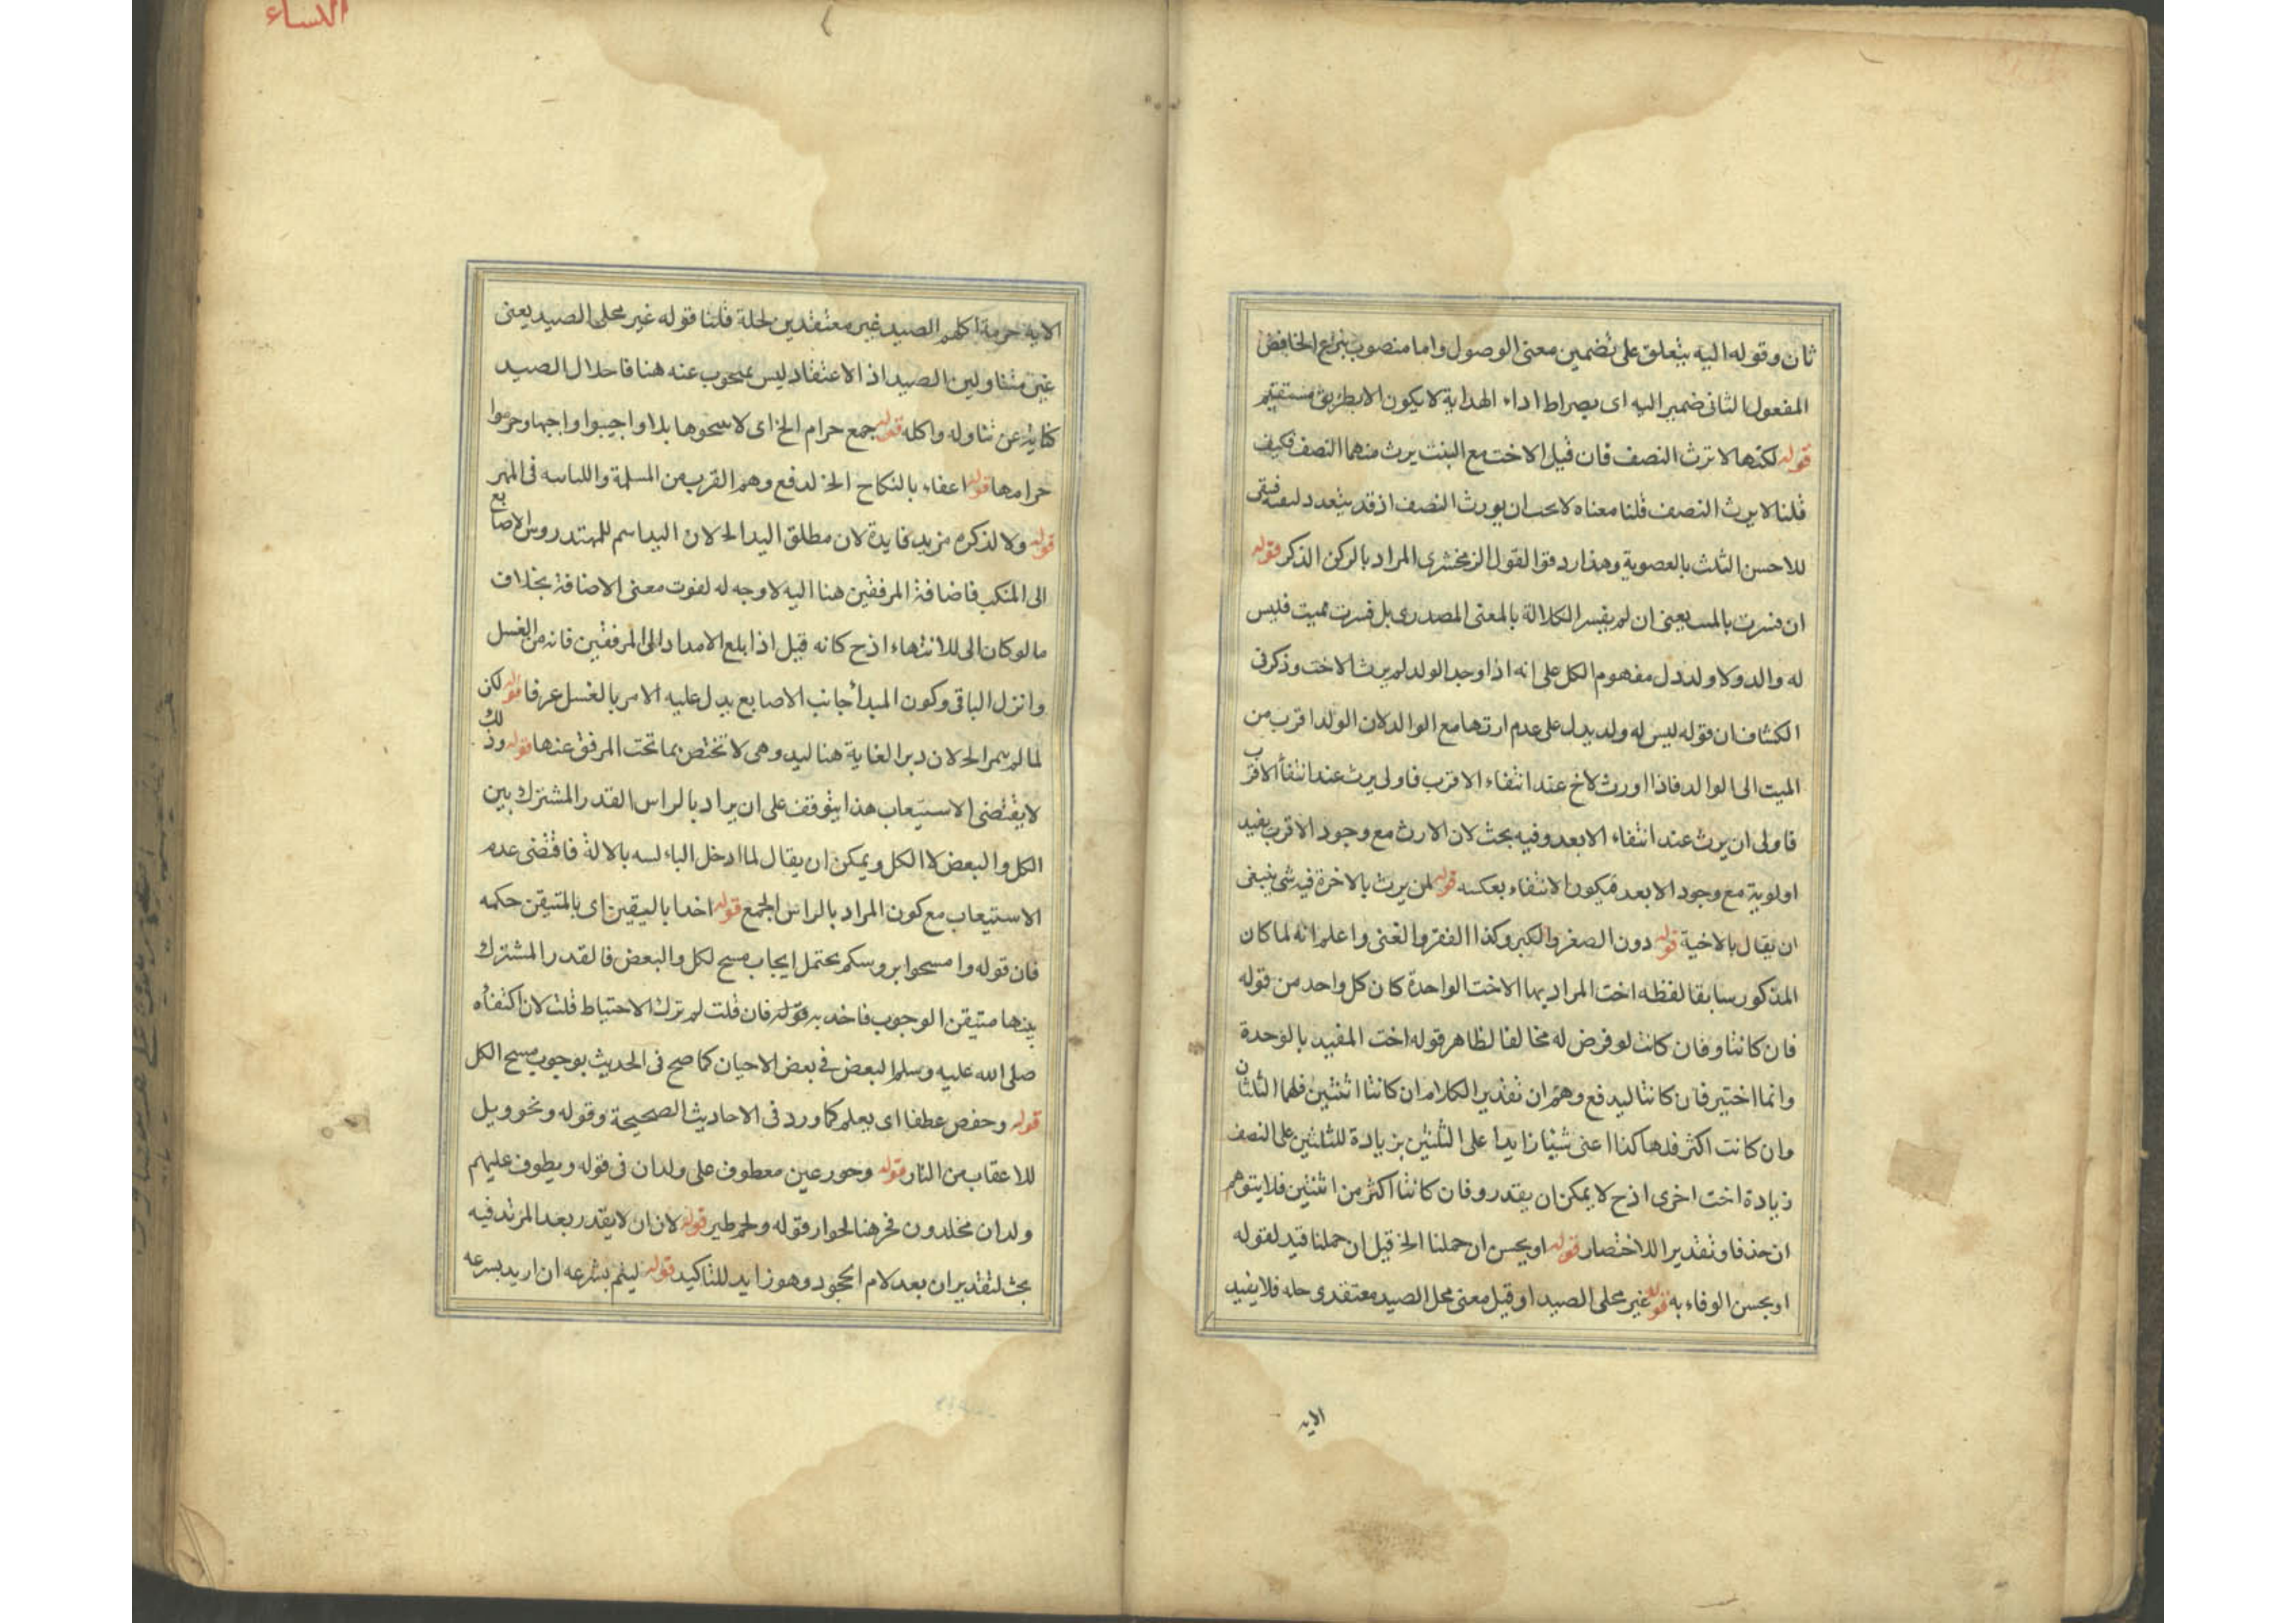 ثان وقوله اليه يتعلق على تضمين معنى الوصول واما منصوب بنزع الخافض
المفعول الثانى ضمير اليه اى بصراط اداء الهداية لا يكون الا بطريق مستقيم
قوله لكنها لا ترث النصف فان قيل الاخت مع البنت يرث منهما النصف فكيف
قلنا لا يرث النصف قلنا معناه لا يجب ان يورث النصف اذ قد يتعدد فيبقى
للاحسن الثلث بالعصوبة وهذا رد قوا لقول الزمخشرى المراد بالركن الذكر قوله
ان فسرت بالمىت يعنى ان لم يفسر الكلالة بالمعنى المصدرى بل فسرت بميت فليس
له والد ولا ولد دل مفهوم الكل على انه اذا وجد الولد لم يرث الاخت وذكر فى
الكشاف ان قوله ليس له ولد يدل على عدم ارثها مع الوالد لان الولد اقرب من
الميت الى الوالد فاذا اورث لاخ عند انتفاء الاقرب فاولى يرث عند انتفأ الاقرب
فاولى ان يرث عند انتفاء الابعد وفيه بحث لان الارث مع وجود الاقرب يفيد
اولوية مع وجود الابعد فيكون الانتفاء بعكسه قوله لمن يرث بالاخرة فيه شى ينبغى
ان يقال بالاخية قوله دون الصغر والكبر وكذا الفقر والغنى واعلم انه لما كان
المذكور سابقا لفظه اخت المراد بها الاخت الواحدة كان كل واحد من قوله
فان كانتا وفان كانت لو فرض له مخالفا لظاهر قوله اخت المفيد بالوحدة
وانما اختير فان كانتا ليدفع وهم ان تقدير الكلام ان كانتا اثنتين فلهما الثلثان
وان كانت اكثر فلها كذا اعنى شيئا زايدا على الثلثين بزيادة للثلثين على النصف
زيادة اخت اخرى اذ ح لا يمكن ان يقدر وفان كانتا اكثر من اثنتين فلا يتوهم
ان حذفا وتقديرا للاختصار قوله او يحسن ان حملنا الخ قيل ان حملنا قيد لقوله
او يحسن الوفاء به قوله غير محلى الصيد او قيل معنى محل الصيد معتقدى حله فلا يفيد
الايه
النساء
الاية حرمة اكلهم الصيد غير معتقدين لحلة قلنا قوله غير محلى الصيد يعنى
غير متناولين الصيد اذ الاعتقاد ليس بمبحوب عنه هنا فاحلال الصيد
كناية عن تناوله واكله قوله جمع حرام الخ اى لا بل اواجيبوا واجبها وحرموا
حرامها قوله اعفاء بالنكاح الخ لدفع وهم القرب من المسلمة واللباسه فى المهر
قوله ولا لذكره مزيد فايدة لان مطلق اليد الخ لان اليد اسم للممتد روس الاصابع
الى المنكب فاضافة المرفقين هنا اليه لا وجه له لفوت معنى الاضافة بخلاف
ما لو كان الى للانتهاء اذ ح كانه قيل اذا بلغ الامداد الى المرفقين فانه من الغسل
وانزل الباقى وكون المبدأ جانب الاصابع يدل عليه الامر بالغسل عرفا قوله لكن
لما لم يمر الخ لان دبر الغاية هنا ليد وهى لا تختص بما تحت المرفق عنها قوله وذلك
لا يقتضى الاستيعاب هذا يتوقف على ان يراد بالراس القدر المشترك بين
الكل والبعض لا الكل ويمكن ان يقال لما ادخل الباء لسه بالالة فاقتضى عدم
الاستيعاب مع كون المراد بالراس الجمع قوله اخدا باليقين اى بالمتيقن حكمه
فان قوله وامسحوا بروسكم يحتمل ايجاب مسح لكل والبعض فالقدر المشترك
بينها متيقن الوجوب فاخد به قوله فان قلت لم ترك الاحتياط قلت لان اكتفأه
صلى الله عليه وسلم البعض فى بعض الاحيان كما صح فى الحديث بوجوب مسح الكل
قوله وحفص عطفا اى يعلم كما ورد فى الاحاديث الصحيحة وقوله ونحو ويل
للاعقاب من النار قوله وحور عين معطوف على ولدان فى قوله ويطوف عليهم
ولدان مخلدون فجر هنا لجوار قوله ولحم طير قوله لان ان لا يقدر بعد المزيد فيه
بحث لتقدير ان بعد لام الجحود وهو زايد للتاكيد قوله ليتم بشرعه ان اريد بشرعه